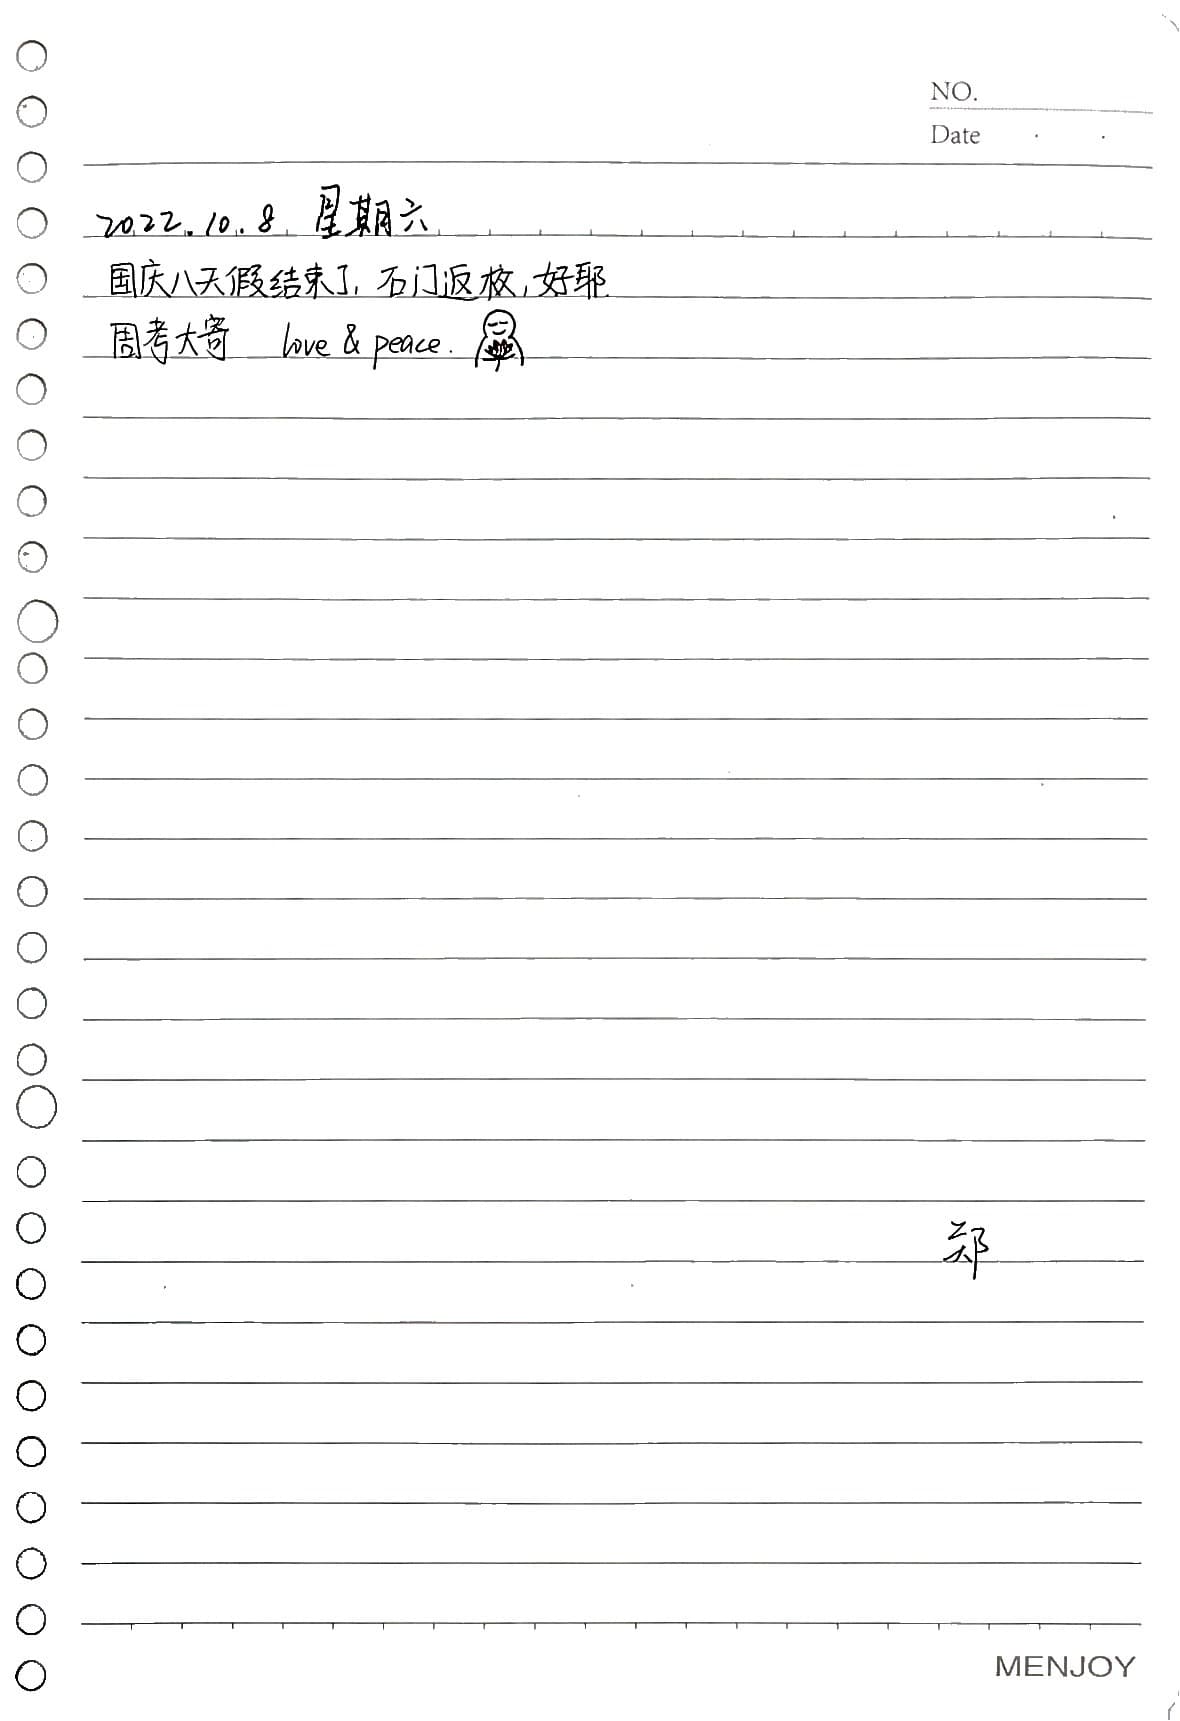 NO.
Date · ·
2022.10.8 星期六
国庆八天假结束了, 石门返校, 好耶
周考大寄 love & peace.
郑
MENJOY